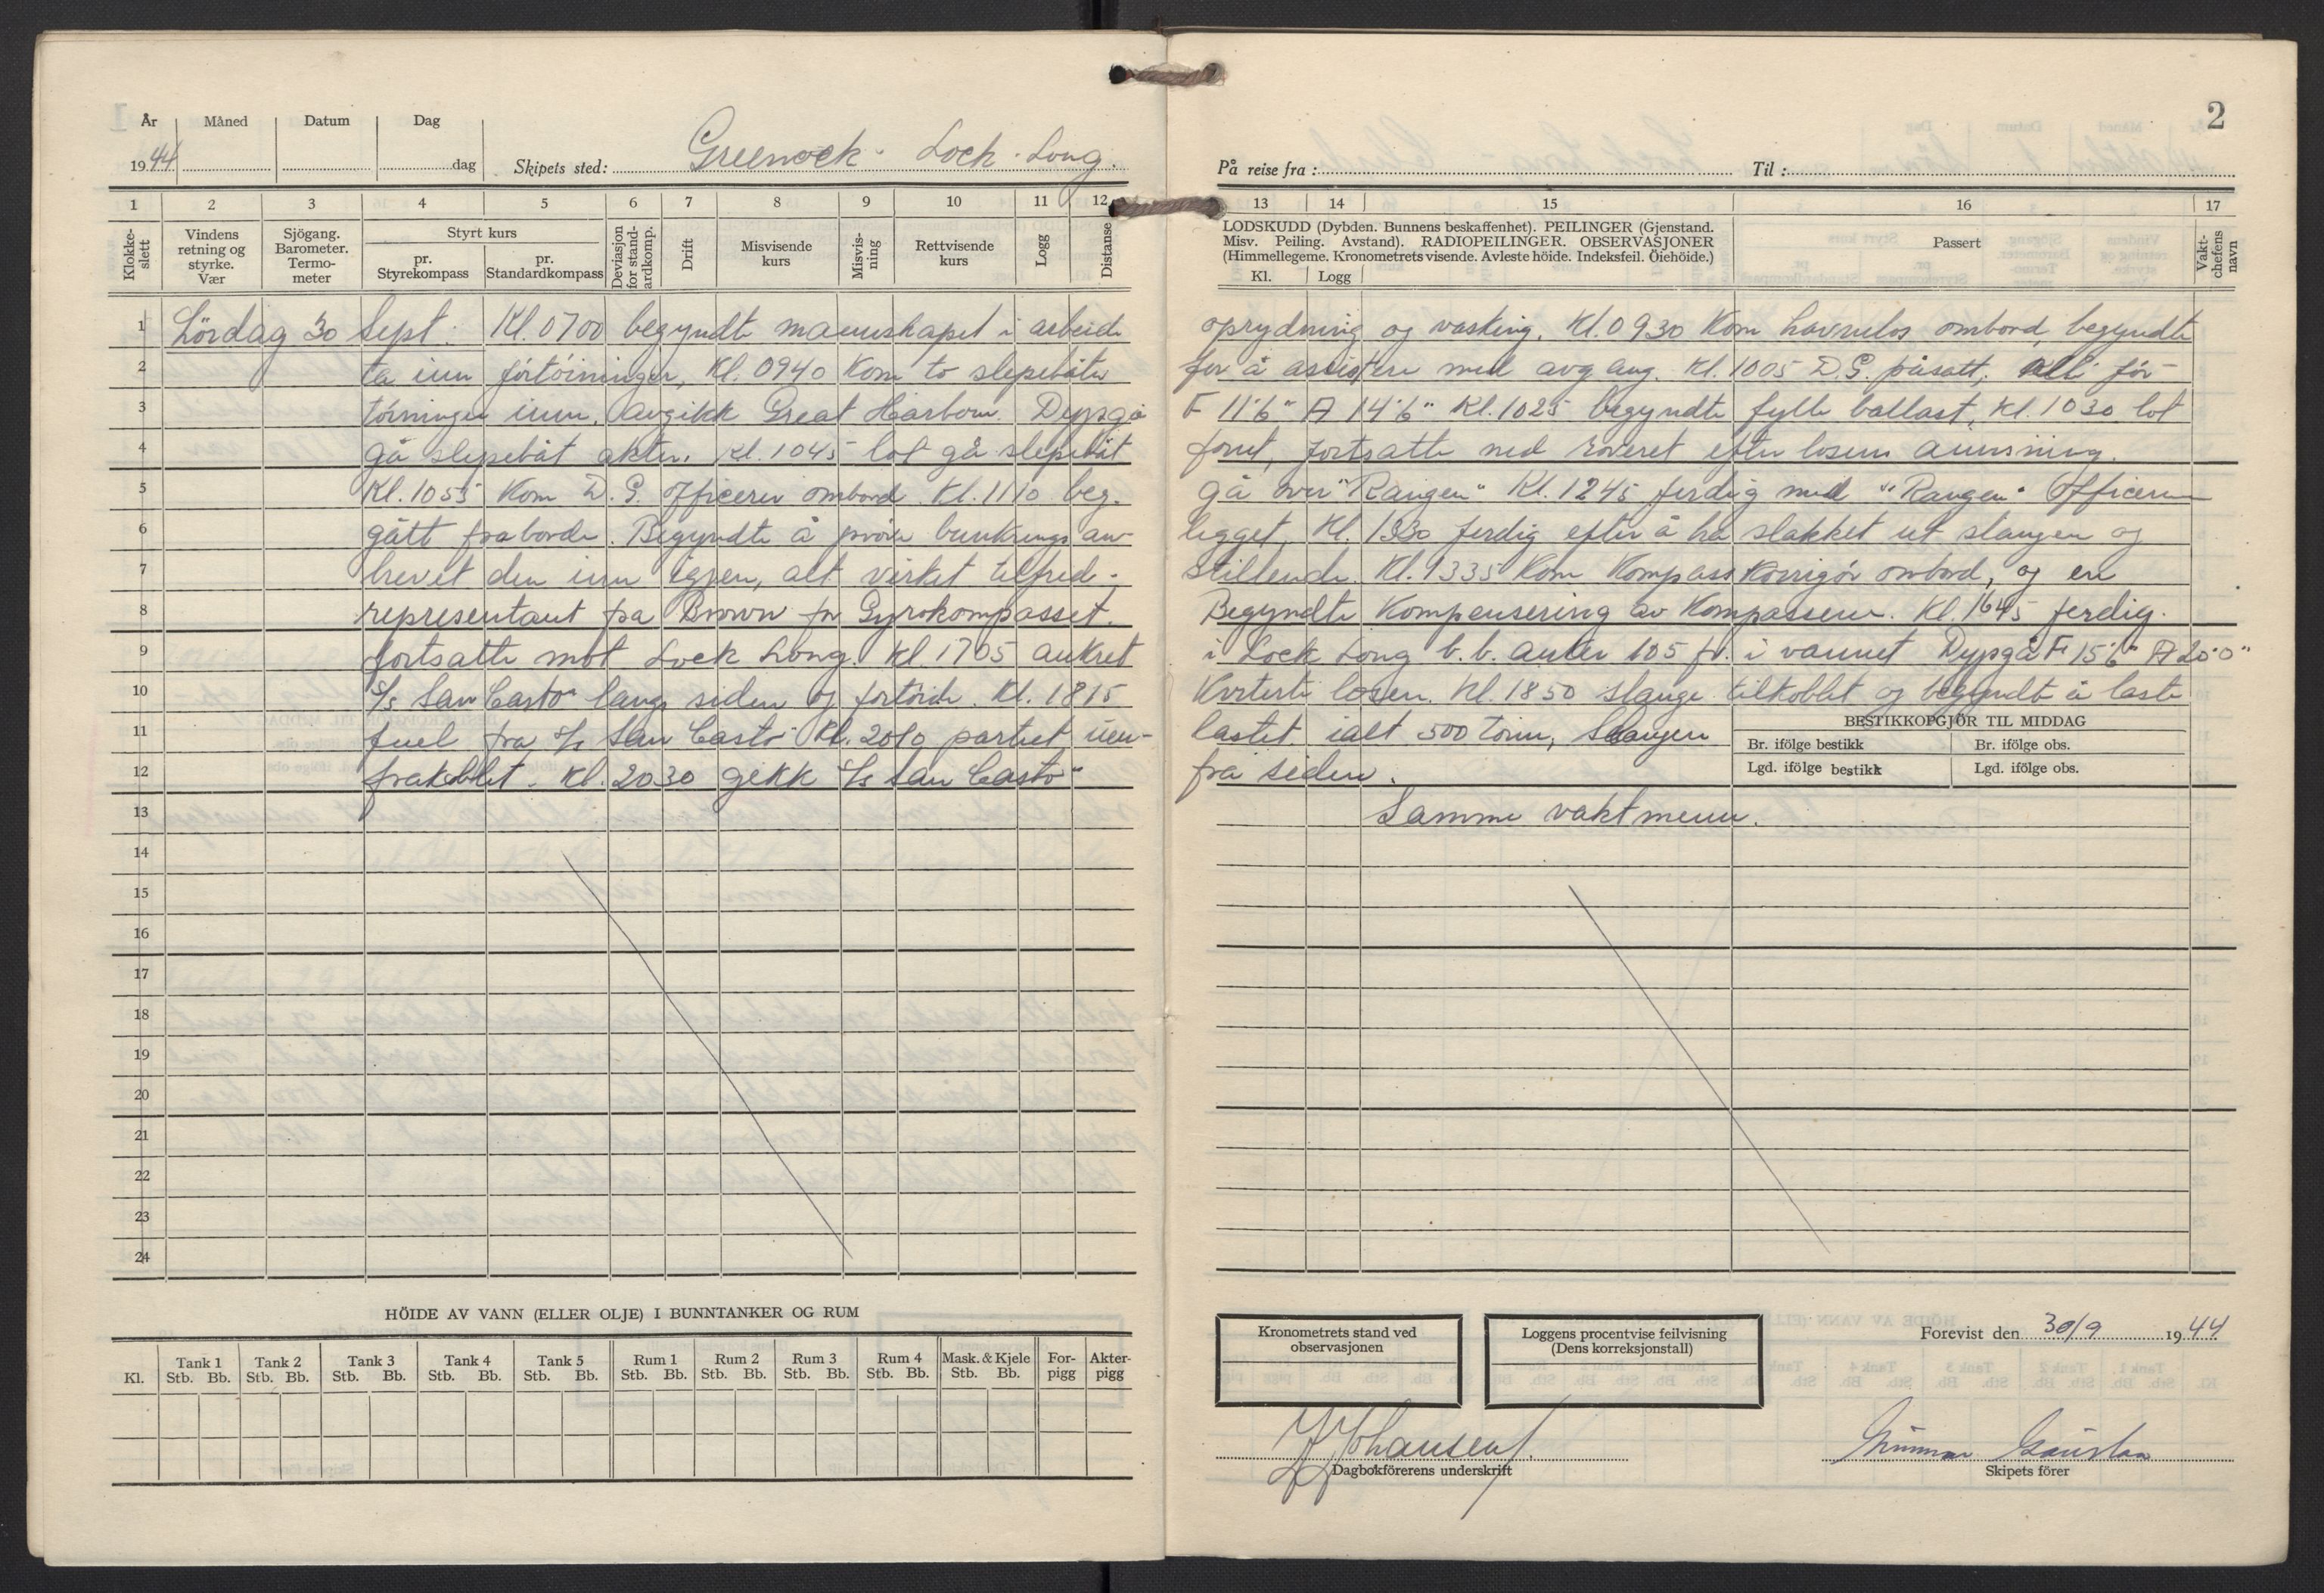 2
År Måned Datum Dag
1944 dag Skipets sted: Greenock - Lock - Long.
På reise fra: Til:
1 2 3 4 5 6 7 8 9 10 11 12 13 14 15 16 17
Klokke-slett
Vindens retning og styrke. Vær
Sjögang. Barometer. Termo-meter
Styrt kurs
pr. Styrekompass
pr. Standardkompass
Deviasjon for stand-ardkomp.
Drift
Misvisende kurs
Misvis-ning
Rettvisende kurs
Logg
Distanse
LODSKUDD (Dybden. Bunnens beskaffenhet). PEILINGER (Gjenstand.
Misv. Peiling. Avstand). RADIOPEILINGER. OBSERVASJONER
(Himmellegeme. Kronometrets visende. Avleste höide. Indeksfeil. Öiehöide.)
Kl. Logg
Passert
Vakt-chefens navn
1 Lördag 30 Sept: Kl. 0700 begyndte mannskapet i arbeide oprydning og vasking. Kl. 0930 Kom havnelos ombord, begyndte
2 ta inn förtöininger, Kl. 0940 Kom to slepebåter for å assistere med avgang. Kl. 1005 D.G. påsatt, alle för-
3 töininger inn. avgikk Great Harbour. Dypgå F 11'6" A 14'6" Kl. 1025 begyndte fylle ballast, Kl. 1030 lot
4 gå slepebåt akter. Kl. 1045 lot gå slepebåt forut, fortsatte ned roveret efter losens anvisning.
5 Kl. 1055 Kom D.G. officerer ombord. Kl. 1110 beg. gå over "Rangen" Kl. 1245 ferdig med "Rangen" Officerene
6 gått fraborde. Begyndte å pröve bunkrings an- legget, Kl. 1330 ferdig efter å ha slakket ut slangen og
7 hevet den inn igjen, alt virket tilfred- stillende. Kl. 1335 Kom Kompasskorrigör ombord, og en
8 representant fra Brown for Gyrokompasset. Begyndte Kompensering av Kompassene. Kl. 1645 ferdig.
9 fortsatte mot Lock Long. Kl 1705 ankret i Lock Long b.b. anker 105 fv. i vannet Dypgå F 15'6" A 20'0"
10 S/s San Casto" langs siden og fortöide. Kl. 1815 Kviterte losen. Kl. 1850 slange tilkoblet og begyndte å laste
11 fuel fra S/s San Casto" Kl. 2010 partiet inn- lastet ialt 500 tonn, Slangen
BESTIKKOPGJÖR TIL MIDDAG
Br. ifölge bestikk Br. ifölge obs.
12 frakoblet. Kl. 2030 gikk S/s San Casto" fra siden.
Lgd. ifölge bestikk Lgd. ifölge obs.
13 Samme vaktmenn.
14
15
16
17
18
19
20
21
22
23
24
HÖIDE AV VANN (ELLER OLJE) I BUNNTANKER OG RUM
Kl. Tank 1 Tank 2 Tank 3 Tank 4 Tank 5 Rum 1 Rum 2 Rum 3 Rum 4 Mask. & Kjele For-pigg Akter-pigg
Stb. Bb. Stb. Bb. Stb. Bb. Stb. Bb. Stb. Bb. Stb. Bb. Stb. Bb. Stb. Bb. Stb. Bb. Stb. Bb.
Kronometrets stand ved observasjonen
Loggens procentvise feilvisning (Dens korreksjonstall)
Forevist den 30/9 1944
Johansen
Dagbokförerens underskrift
Skipets förer